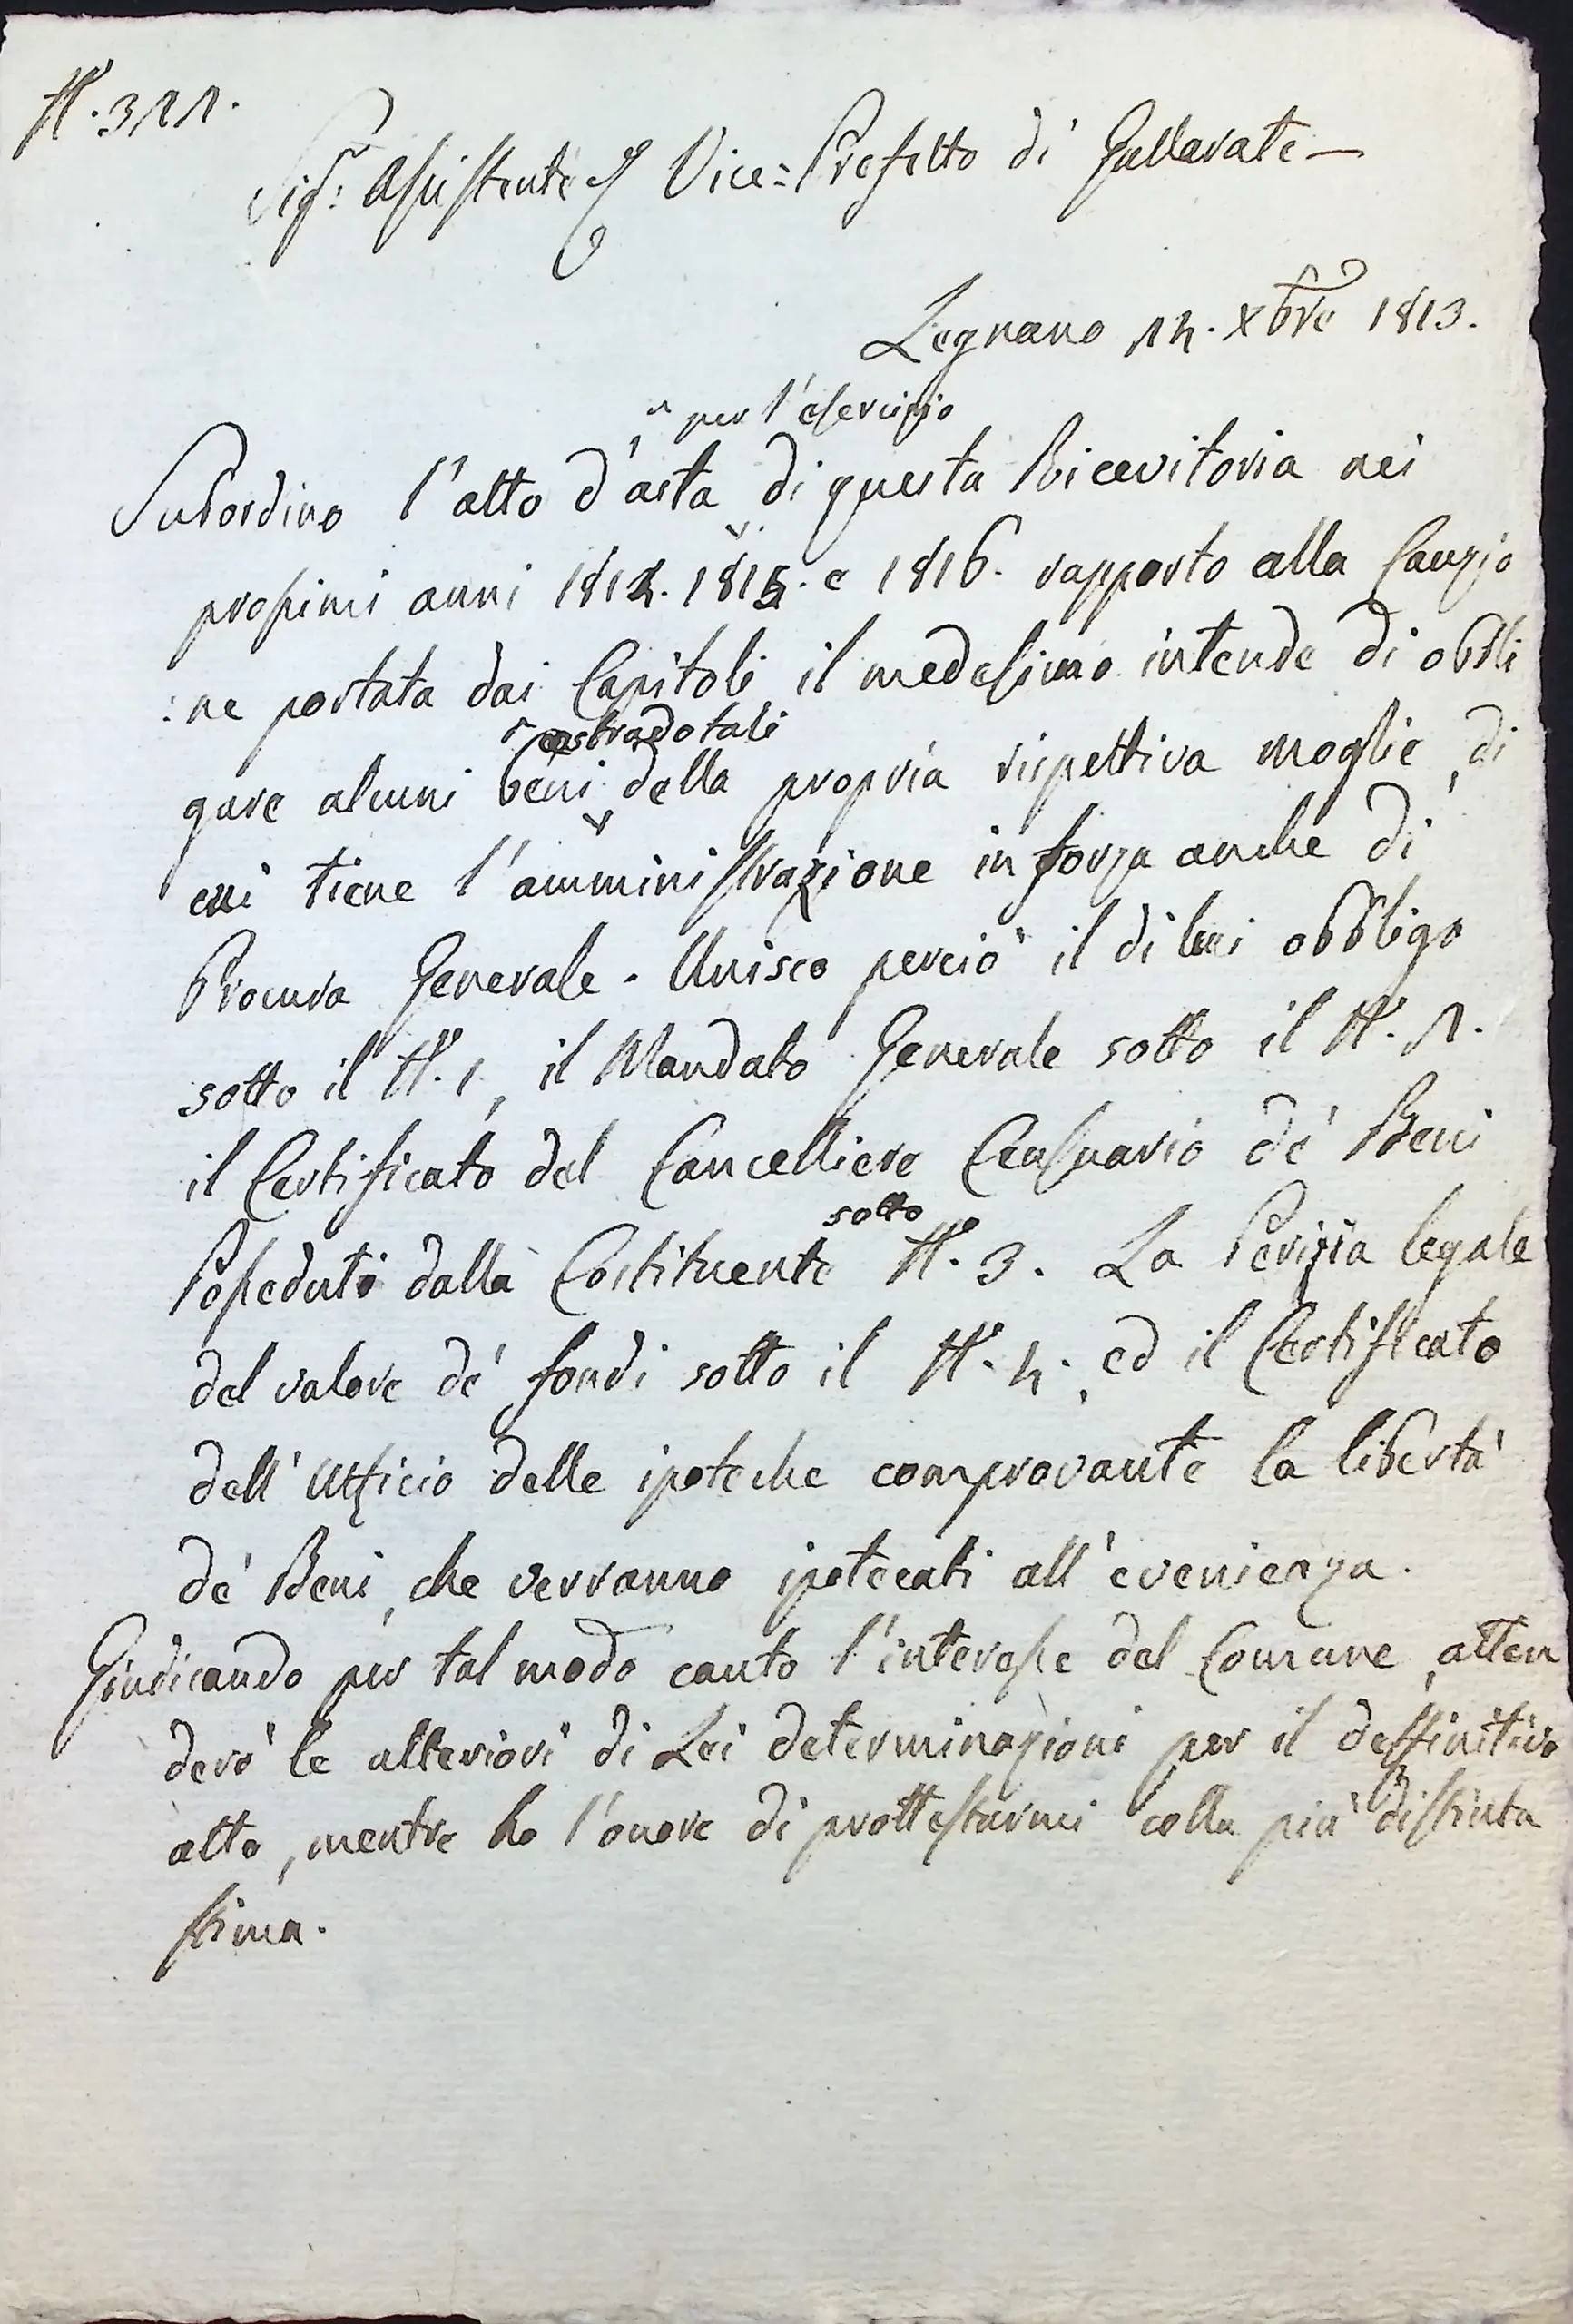 N.° 322.
Sig.r Assistente Vice=Prefetto di Gallarate —
Legnano 14. Xbre 1813.
per l'esercizio
Subordino l'atto d'asta di questa Ricevitoria nei
prossimi anni 1814. 1815. e 1816. rapporto alla Cauzio
:ne portata dai Capitoli il medesimo intende di obbli
estradotali
gare alcuni beni della propria rispettiva moglie, di
cui tiene l'amministrazione in forza anche di
Procura Generale. Unisco perciò il di lui obbligo
sotto il N.° 1, il Mandato Generale sotto il N.° 2.
il Certificato del Cancelliere Censuario de' Beni
sotto
Posseduti dalla Costituente N.° 3. La Perizia legale
del valore de' fondi sotto il N.° 4., ed il Certificato
dell'Ufficio delle ipoteche comprovante la libertà
de' Beni, che verranno ipotecati all'evenienza.
Giudicando per tal modo cauto l'interesse del Comune, atten
derò le ulteriori di Lei determinazioni per il deffinitivo
atto, mentre ho l'onore di prottestarmi colla più distinta
stima.